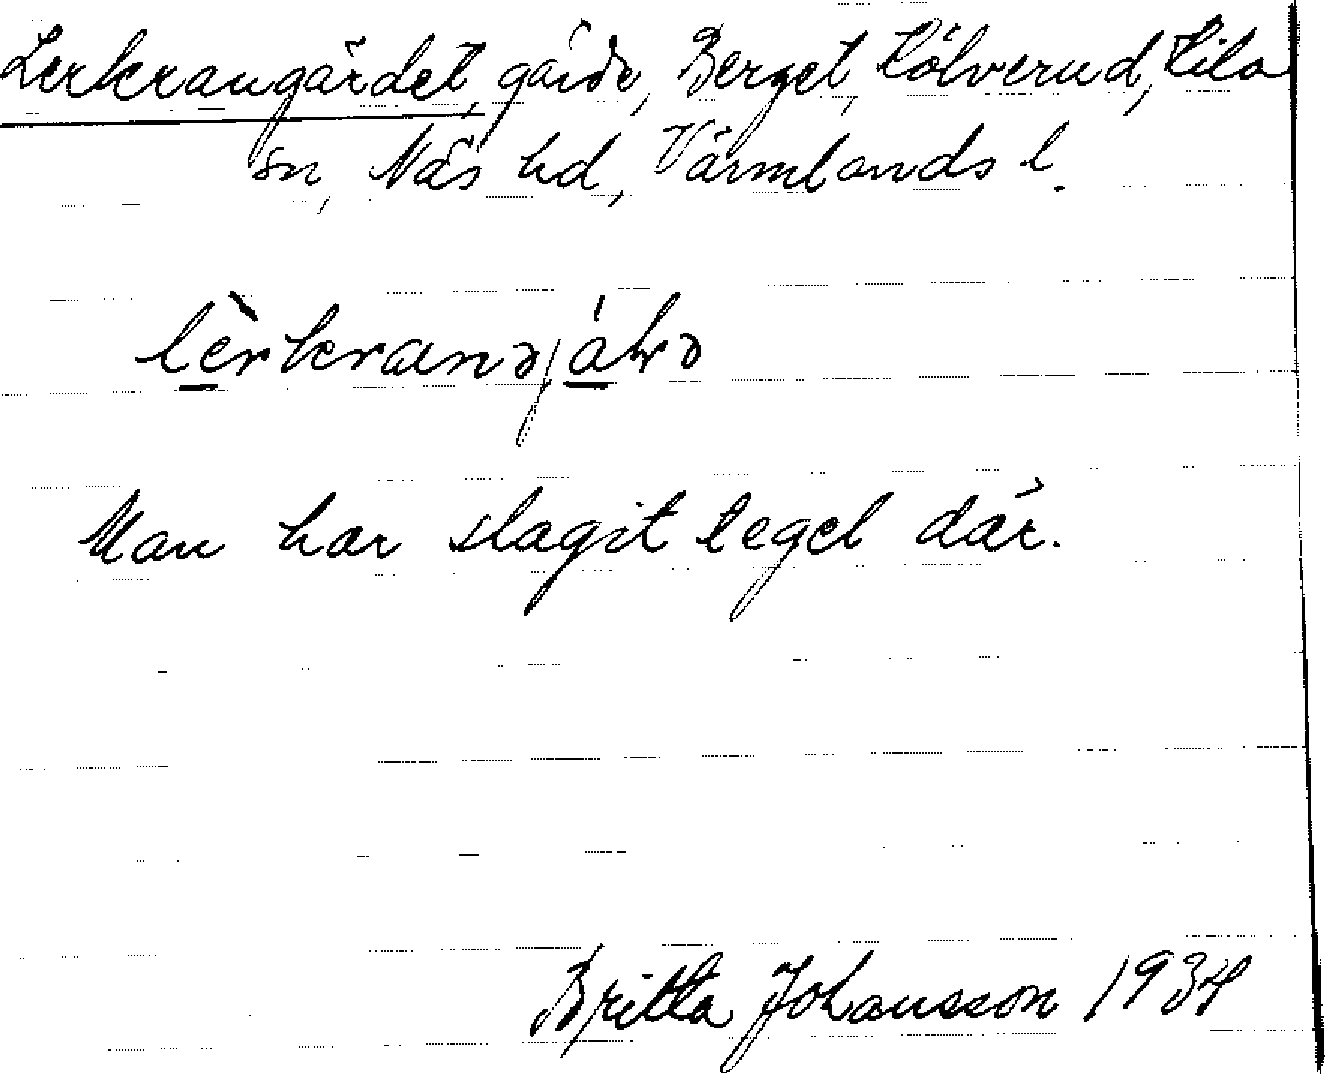 Lerkrangärdet, gärde, Berget, Kölverud, Kila
sn, Näs hd, Värmlands l.
lèrkranəjáꞎə
Man har slagit tegel där.
Britta Johansson 1934